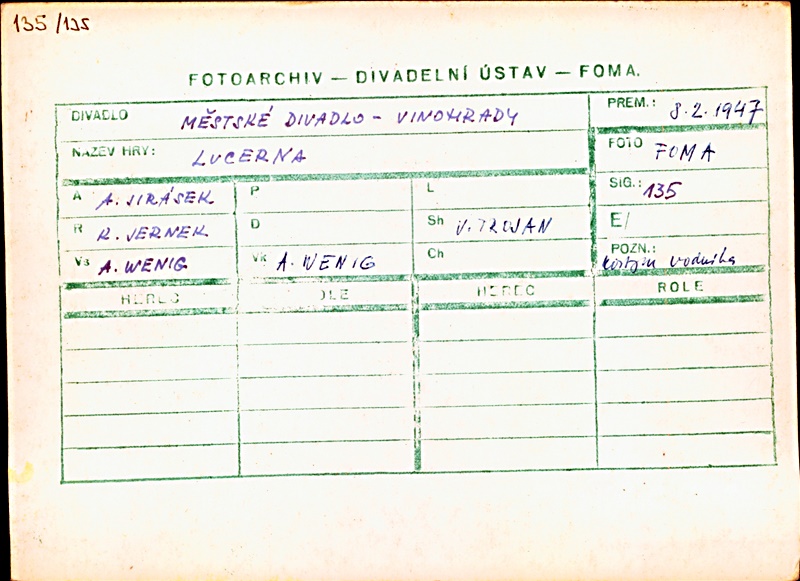 135/135
FOTOARCHIV — DIVADELNÍ ÚSTAV — FOMA.
DIVADLO MĚSTSKÉ DIVADLO - VINOHRADY
PREM.: 8.2.1947
NÁZEV HRY: LUCERNA
FOTO FOMA
A A. JIRÁSEK P L SIG.: 135
R R. JERNEK D Sh V. TROJAN E/
Vs A. WENIG Vk A. WENIG Ch POZN.: kostým vodníka
HEREC ROLE HEREC ROLE